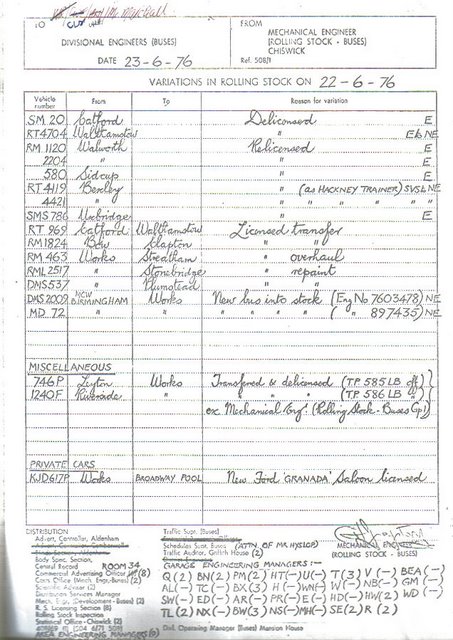 TO
DIVISIONAL ENGINEERS (BUSES)
DATE 23-6-76
FROM
MECHANICAL ENGINEER
(ROLLING STOCK - BUSES)
CHISWICK
Ref. 508/1
VARIATIONS IN ROLLING STOCK ON 22-6-76
Vehicle number From To Reason for variation
SM 20 Catford Delicensed E
RT4704 Walthamstow " E6 NE
RM 1120 Walworth Relicensed E
2204 " " E
580 Sidcup " E
RT 4119 Bexley " (as HACKNEY TRAINER) SVSL NE
4421 " " " " " " NE
SMS 786 Uxbridge " E
RT 969 Catford Walthamstow Licensed transfer
RM1824 Bow Clapton " "
RM 463 Works Streatham " overhaul
RML 2517 " Stonebridge " repaint
DMS537 " Plumstead "
DMS2009 MCW BIRMINGHAM Works New bus into stock (Eng No 7603478) NE
MD 72 " " " " " " ( " 897435) NE
MISCELLANEOUS
746P Leyton Works Transferred & delicensed (T.P. 585 LB off)
1240F Riverside " " " " (T.P. 586 LB ")
ex Mechanical Engr. (Rolling Stock - Buses Gp1)
PRIVATE CARS
KJD617P Works BROADWAY POOL New Ford 'GRANADA' Saloon licensed
DISTRIBUTION
Advert. Controller, Aldenham
Body Spec. Section,
Central Record ROOM 34
Commercial Advertising Officer (8)
Costs Office (Mech. Engr.-Buses) (2)
Scientific Adviser (2)
Distribution Services Manager
Mech. Engr. Development-Buses (2)
R. S. Licensing Section (8)
Rolling Stock Inspector
Statistics Office - Chiswick (2)
Traffic Supt. (Buses)
Schedules Supt. Buses (ATTN OF MR HYSLOP)
Traffic Auditor, Griffith House (2)
MECHANICAL ENGINEER
(ROLLING STOCK - BUSES)
GARAGE ENGINEERING MANAGERS :-
Q(2) BN(2) PM(2) HT(-) U(-) T(3) V(-) BEA(-)
AL(-) TC(-) BX(3) H(-) WH(-) W(-) NB(-) GM(-)
SW(-) ED(-) AR(-) PR(-) E(-) HD(-) HW(2) WD(-)
TL(2) NX(-) BW(3) NS(-) MH(-) SE(2) R(2)
Divl. Operating Manager (Buses) Mansion House